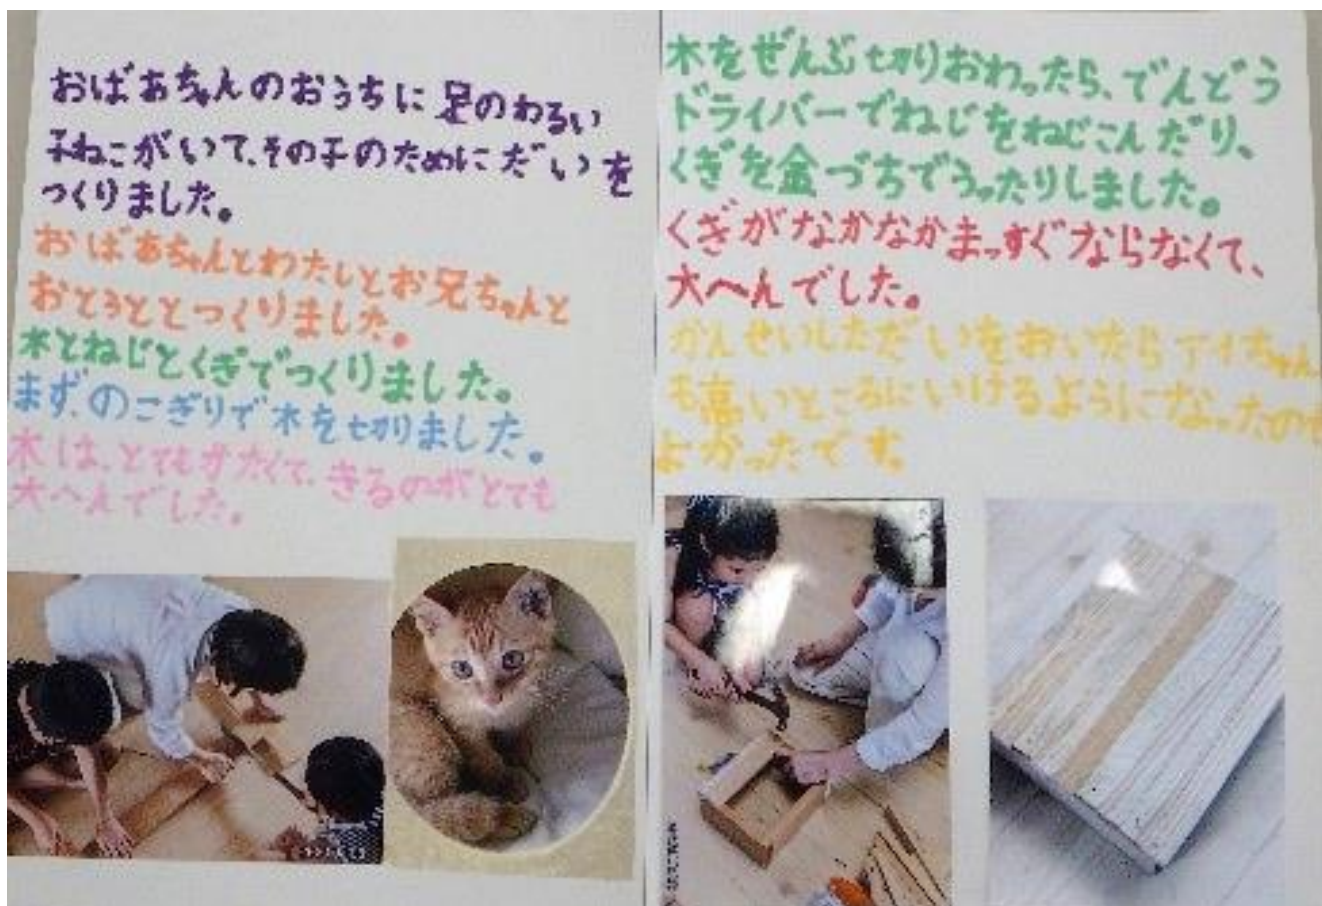 おばあちゃんのおうちに足のわるい
子ねこがいて、その子のためにだいを
つくりました。
おばあちゃんとわたしとお兄ちゃんと
おとうととつくりました。
木とねじとくぎでつくりました。
まず、のこぎりで木を切りました。
木は、とてもかたくて、きるのがとても
大へんでした。
木をぜんぶ切りおわったら、でんどう
ドライバーでねじをねじこんだり、
くぎを金づちでうったりしました。
くぎがなかなかまっすぐならなくて、
大へんでした。
かんせいしただいをおいたら
も高いところにいけるようになったので
よかったです。